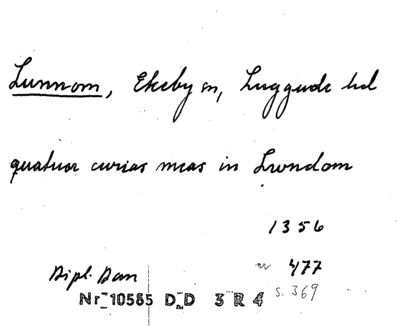 Lunnom, Ekeby sn, Luggude hd
quatuor curias meas in Lwndom
1356
Dipl. Dan nr 477
Nr 10565 D D 3 R 4 s. 369